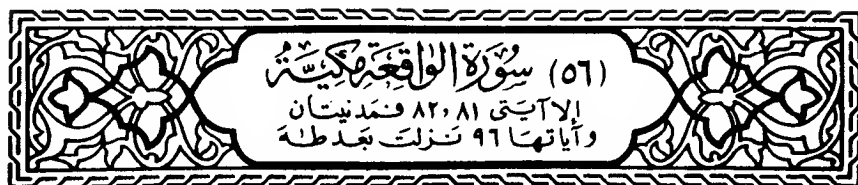 (٥٦) سُورَةُ الْوَاقِعَةِ مَكِّيَّةٌ
إلا آيتى ٨١، ٨٢ فمدنيتان
وآياتها ٩٦ نزلت بعد طه